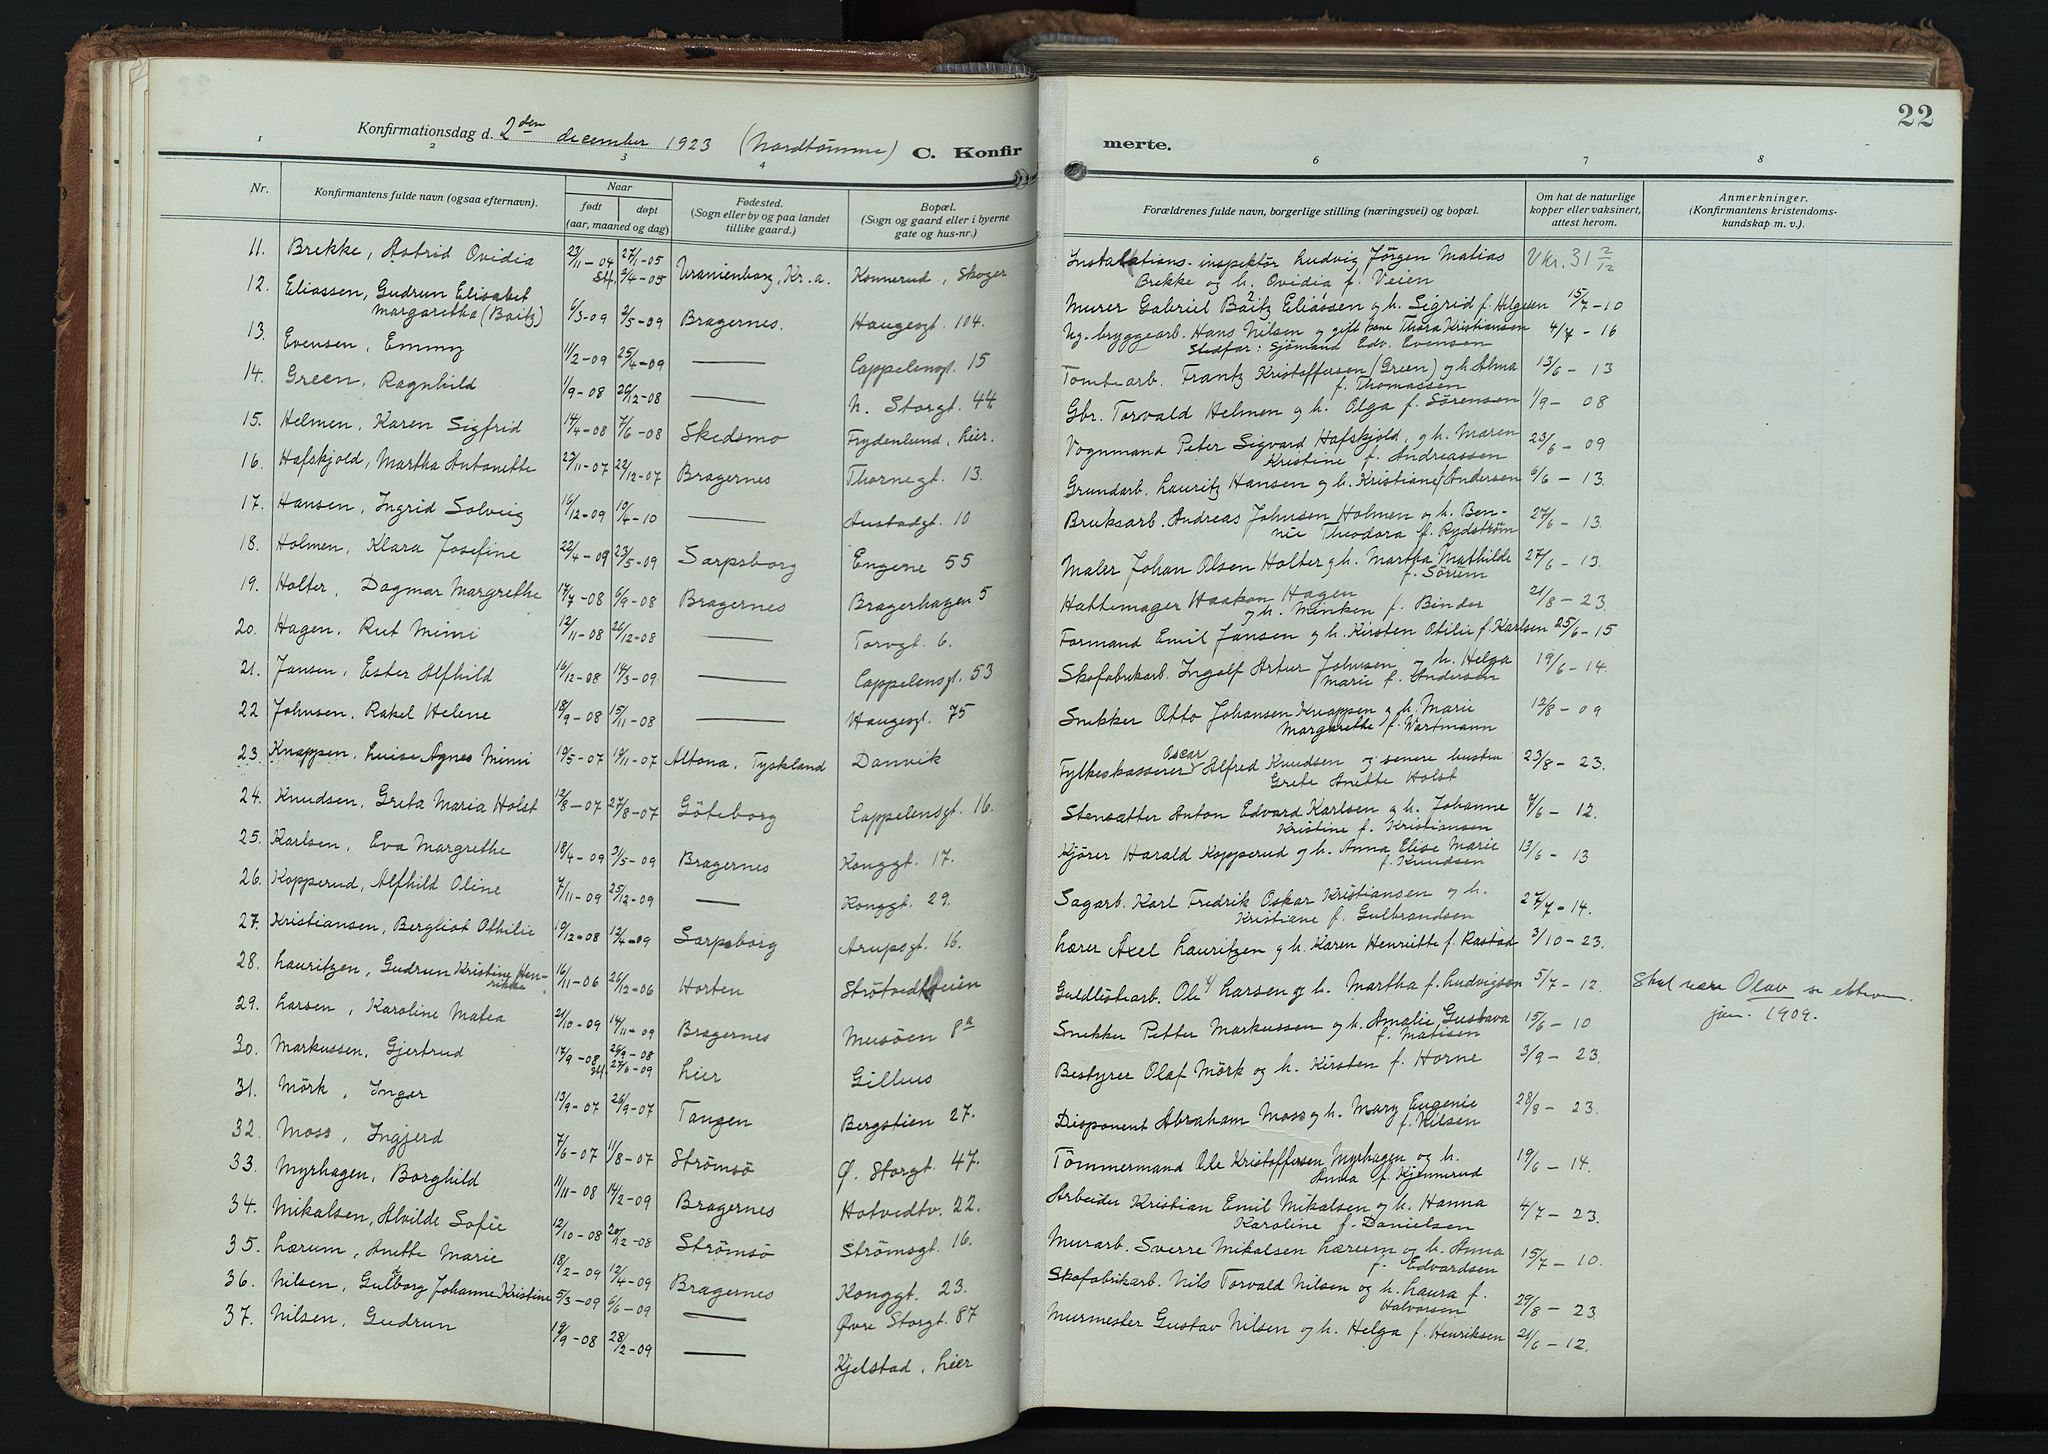 22
Konfirmationsdag d. 2den december 1923 (Nordtömme) C. Konfirmerte.
1 2 3 4 6 7 8
Nr. Konfirmantens fulde navn (ogsaa efternavn). Naar født døpt (aar, maaned og dag) Fødested. (Sogn eller by og paa landet tillike gaard.) Bopæl. (Sogn og gaard eller i byerne gate og hus-nr.) Forældrenes fulde navn, borgerlige stilling (næringsvei) og bopæl. Om hat de naturlige kopper eller vaksinert, attest herom. Anmerkninger. (Konfirmantens kristendomskundskap m. v.).
11. Brekke, Astrid Ovidia 23/11-04 27/1-05 Stf. 2/4-05 Uranienborg, Kr.a. Konnerud, Skoger Instalations-inspektör Ludvig Jörgen Matias Brekke og h. Ovidia f. Veien Vkr. 31 2/12
12. Eliassen, Gudrun Elisabet Margaretha (Baitz) 6/3-09 2/5-09 Bragernes. Haugesgt. 104. Murer Gabriel Baitz Eliassen og h. Sigrid f. Helgesen 15/7-10
13. Evensen, Emmy 11/2-09 25/4-09 — Cappelensgt. 15 Ug. bryggearb. Hans Nilsen og gift kone Thora Kristiansen Stedfar: Sjømand Edv. Evensen 4/7-16
14. Green, Ragnhild 1/9-08 26/12-08 — N. Storgt. 44 Tomtearb. Frantz Kristoffersen (Green) og h. Alma f. Thomassen 13/6-13
15. Helmen, Karen Sigfrid 14/4-08 7/6-08 Skedsmo Frydenlund, Lier. Gbr. Torvald Helmen og h. Olga f. Sørensen 1/9-08
16. Hafskjold, Martha Antonette 23/11-07 22/12-07 Bragernes Thornegt. 13. Vognmand Peter Sigvard Hafskjold, og h. Maren Kristine f. Andreassen 23/6-09
17. Hansen, Ingrid Solveig 16/12-09 10/4-10 — Austadgt. 10 Grundarb. Lauritz Hansen og h. Kristiane f. Andersen 6/6-13
18. Holmen, Klara Josefine 22/4-09 23/5-09 Sarpsborg Engene 55 Bruksarb. Andreas Johnsen Holmen og h. Bennie Theodora f. Rydström 27/6-13.
19. Holter, Dagmar Margrethe 17/7-08 6/9-08 Bragernes Bragerhagen 5 Maler Johan Olsen Holter og h. Martha Mathilde f. Sörum 27/6-13.
20. Hagen, Rut Mimi 12/11-08 26/12-08 — Torvgt. 6. Hattemager Haakon Hagen og h. Minken f. Binder 21/8-23.
21. Jansen, Ester Alfhild 16/12-08 14/3-09 — Cappelensgt. 53 Formand Emil Jansen og h. Kirsten Otilie f. Karlsen 25/6-15
22 Johnsen, Rakel Helene 18/9-08 15/11-08 — Haugesgt. 75 Skofabrikarb. Ingolf Artur Johnsen og h. Helga Marie f. Andersen 19/6-14.
23. Knappen, Luise Agnes Mimi 10/5-07 19/11-07 Altona, Tyskland Danvik Snikker Otto Johansen Knappen og h. Marie Margarethe f. Wartmann 12/8-09
24. Knudsen, Greta Maria Holst 12/8-07 27/8-07 Göteborg Cappelensgt. 16. Fylkeskasserer Oscar Alfred Knudsen og senere hustru Grete Anette Holst 23/8-23.
25. Karlsen, Eva Margrethe 18/4-09 31/5-09 Bragernes Konggt. 17. Stensætter Anton Edvard Karlsen og h. Johanne Kristine f. Kristiansen 7/6-12.
26. Kopperud, Alfhild Oline 7/11-09 25/12-09 — Konggt. 29. Kjörer Harald Kopperud og h. Anna Elise Marie f. Knudsen 13/6-13
27. Kristiansen, Bergliot Othilie 19/12-08 12/4-09 Sarpsborg Arupsgt. 16. Sagarb. Karl Fredrik Oskar Kristiansen og h. Kristiane f. Gulbrandsen 27/7-14.
28. Lauritzen, Gudrun Kristine Henrikke 16/11-06 26/12-06 Horten Strötvedtveien Lærer Axel Lauritzen og h. Karen Henriette f. Rastad 3/10-23.
29. Larsen, Karoline Matea 21/10-09 14/11-09 Bragernes Musöen 8a Guldlistearb. Ole Larsen og h. Martha f. Ludvigsen 5/7-12. Skal være Olav se jan. 1909.
30. Markussen, Gjertrud 17/9-08 26/9-08 st. 27/6-09 Lier Gilhus Snekker Petter Markussen og h. Amalie Gustava f. Matisen 15/6-10
31. Mörk, Inger 13/9-07 26/9-07 Tangen Bergstien 27. Bestyrer Olaf Mörk og h. Kirsten f. Horne 3/9-23.
32. Moss, Ingjerd 7/6-07 11/8-07 Strömsö Ø. Storgt. 47. Disponent Abraham Moss og h. Mary Eugenie f. Nilsen 28/8-23.
33. Myrhagen, Borghild 11/11-08 14/2-09 Bragernes Hotvedtv. 22. Tömmermand Ole Kristoffersen Myrhagen og h. Anna f. Kjennerud 19/6-14.
34. Mikalsen, Alvilde Sofie 12/10-08 20/12-08 Strömsö Strömsgt. 16. Arbeider Kristian Emil Mikalsen og h. Hanna Karoline f. Danielsen 4/7-23.
35. Lærum, Anette Marie 18/2-09 12/4-09 Bragernes Konggt. 23. Murarb. Sverre Mikalsen Lærum og h. Anna f. Edvardsen 15/7-10.
36. Nilsen, Gulborg Johanne Kristine 5/3-09 6/6-09 — Øvre Storgt. 87 Skofabrikarb. Nils Torvald Nilsen og h. Laura f. Halvorsen 29/8-23
37. Nilsen, Gudrun 19/9-08 28/2-09 — Kjelstad, Lier Murmester Gustav Nilsen og h. Helga f. Henriksen 21/6-12.